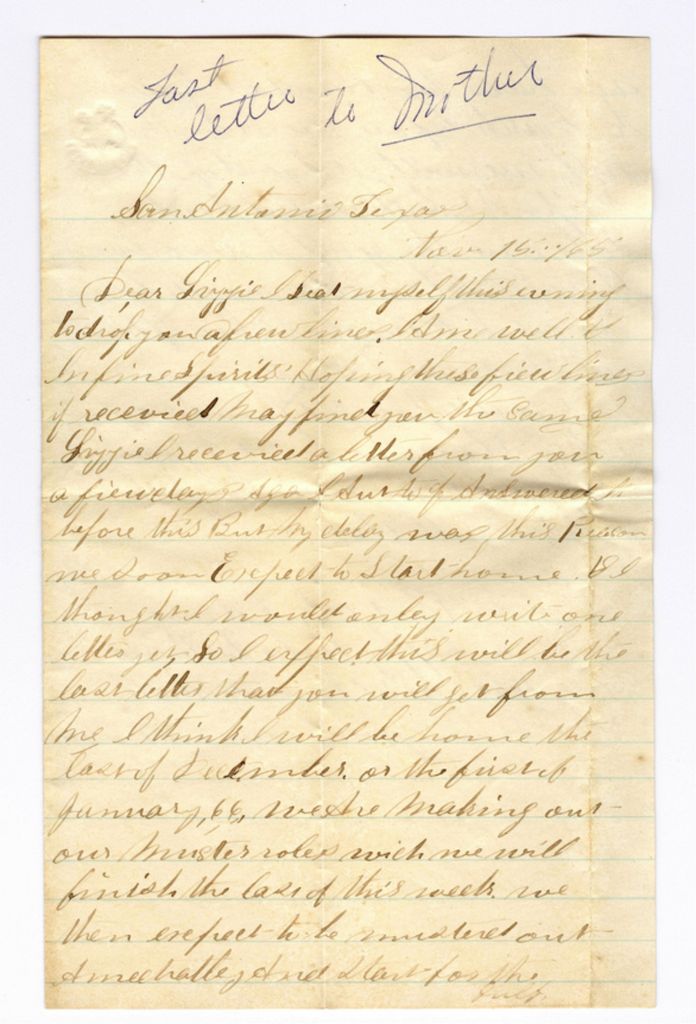 Last
letter to Mother
San Antonio Texas
Nov 15../65
Dear Lizzie I seat myself this evning
to drop you a few lines. I Am well &
In fine spirits Hoping these fiew lines
if receevied May find you the same
Lizzie I receevied a letter from you
a fiew days Ago I Aut to of Answered it
before this But my delay was this Reason
we soon Expect to Start home. & I
thought I would onley write one
letter yet, So I expect this will be the
last letter that you will get from
Me I think I will be home the
last of December. or the first of
January, 66, we Are Making out
our Muster roles wich we will
finish the last of this week. we
then expect to be mustered out
Ameadatley And Start for the